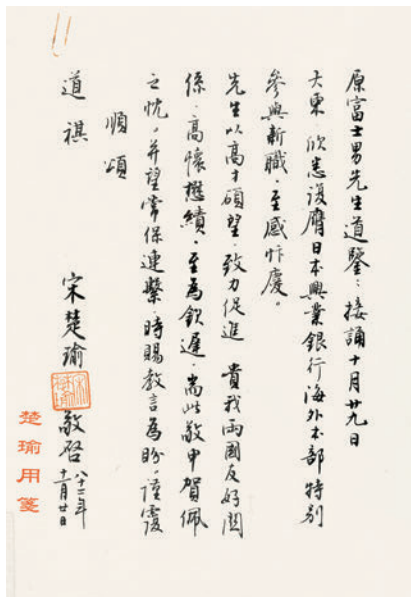 原富士男先生道鑒：接誦十月廿九日
大柬，欣悉復膺日本興業銀行海外本部特別
參與新職，至感忭慶。
先生以高才碩望，致力促進　貴我兩國友好關
係，高懷懋績，至為欽遲，耑此敬申賀佩
之忱，并望常保連繫，時賜教言為盼，謹覆
順頌
道祺
宋楚瑜
敬啓
八十二年
十一月廿日
楚瑜用箋